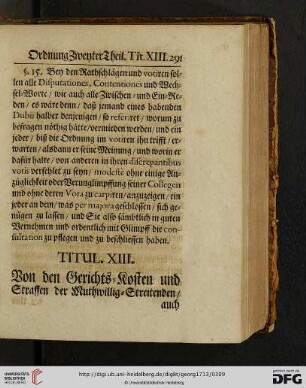 Ordnung Zweyter Theil. Tit. XIII. 291
§. 15. Bey den Rathschlägen und votiren sol-
len alle Disputationes, Contentiones und Wech-
sel-Worte / wie auch alle Zwischen- und Ein-Re-
den / es wäre denn / daß jemand eines habenden
Dubii halber denjenigen / so referiret / worum zu
befragen nöthig hätte / vermieden werden / und ein
jeder / biß die Ordnung im votiren ihn trifft / er-
warten / alsdann er seine Meinung / und worin er
dafür halte / von anderen in ihren discrepantibus
votis verfehlet zu seyn / modestè ohne einige An-
züglichkeit oder Verunglimpffung seiner Collegen
und ohne deren Vora zu carpiren / anzuzeigen / ein
jeder an dem / was per majora geschlossen / sich ge-
nügen zu lassen / und Sie also sämbtlich in guten
Vernehmen und ordentlich mit Glimpff die con-
sultation zu pflegen und zu beschliessen haben.
TITUL. XIII.
Von den Gerichts-Kosten und
Straffen der Muthwillig-Streitenden /
auch
UNIVERSITÄTS-
BIBLIOTHEK
HEIDELBERG
http://digi.ub.uni-heidelberg.de/diglit/georg1713/0309
© Universitätsbibliothek Heidelberg